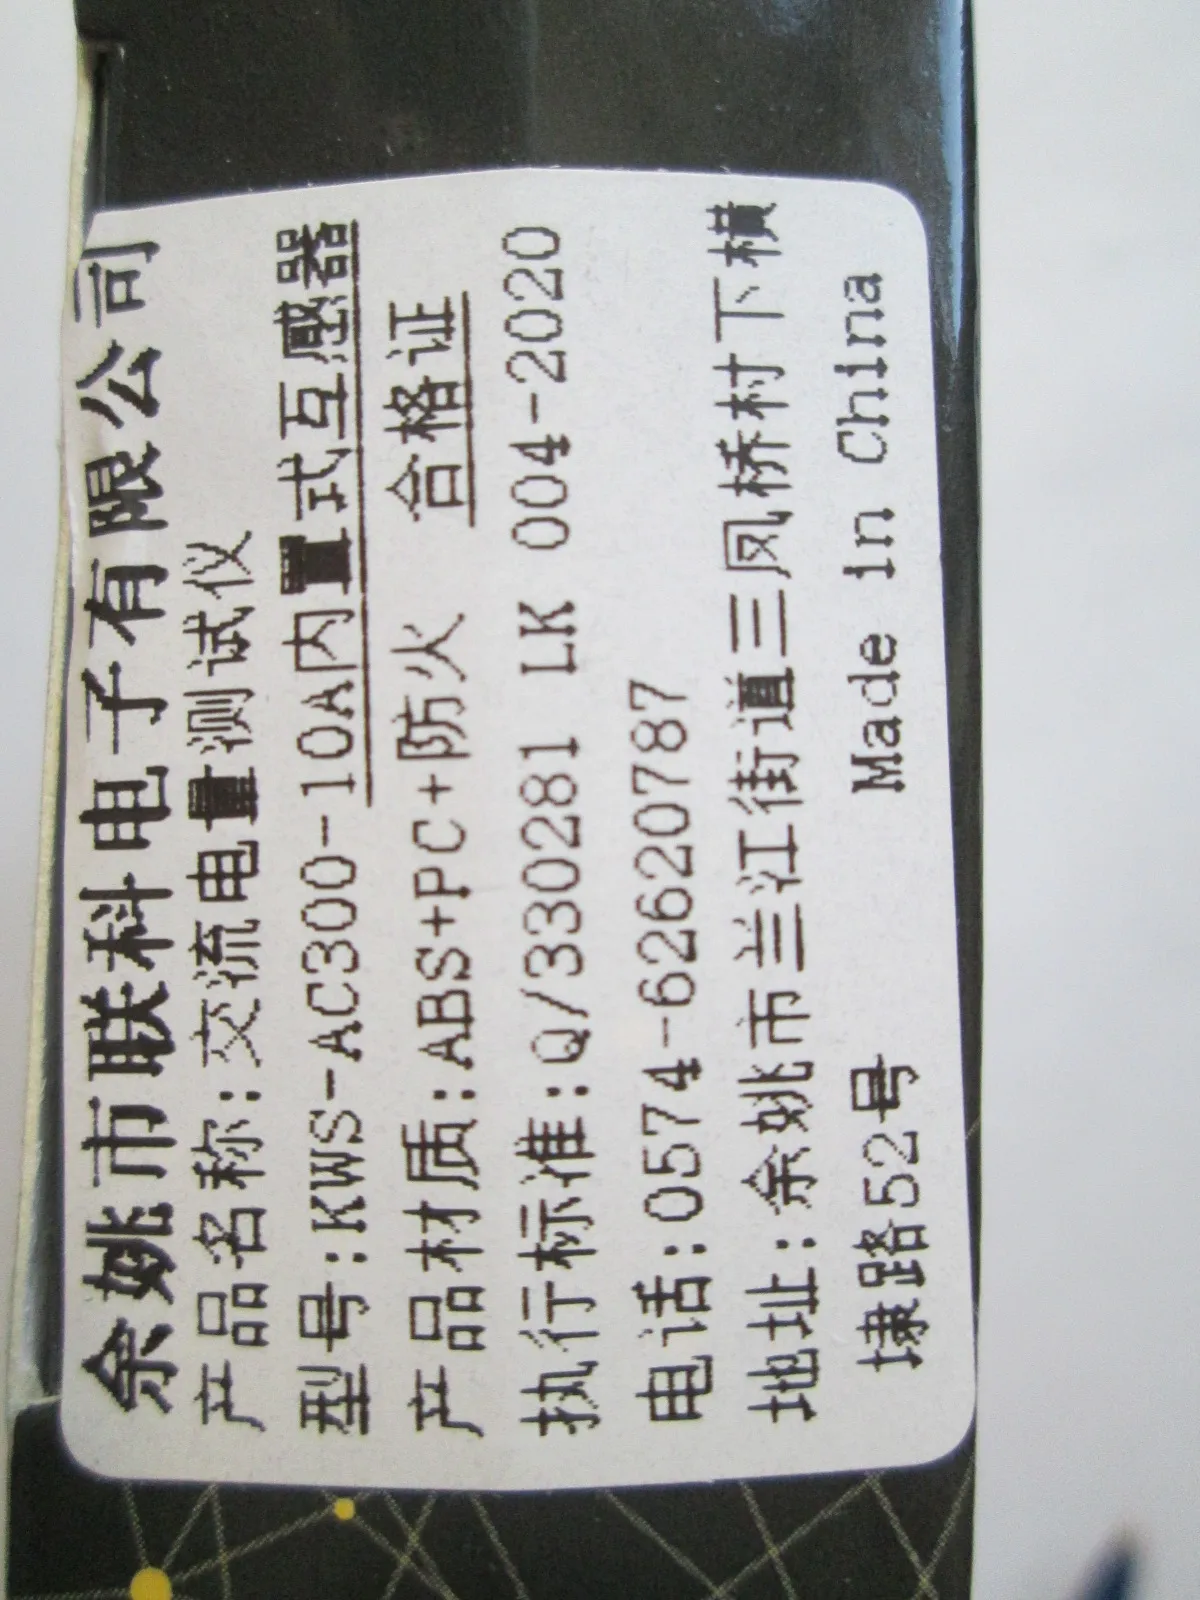 余姚市联科电子有限公司
产品名称:交流电量测试仪
型号:KWS-AC300-10A内置式互感器
产品材质:ABS+PC+防火 合格证
执行标准:Q/330281 LK 004-2020
电话:0574-62620787
地址:余姚市兰江街道三凤桥村下横
埭路52号 Made in China